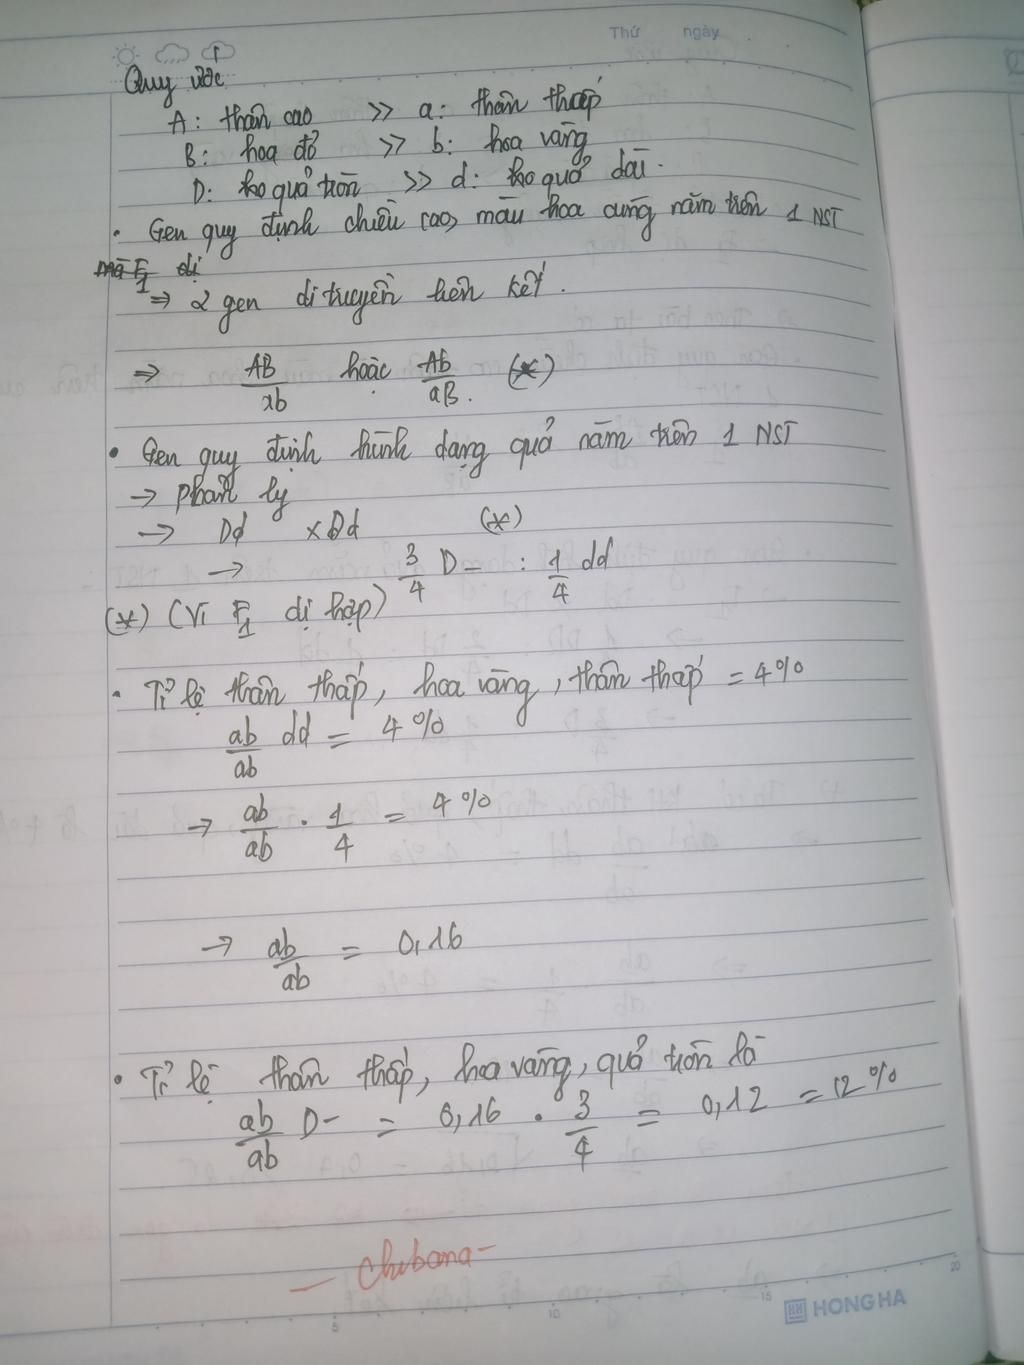 Thứ ngày
Quy ước
A: thân cao >> a: thân thấp
B: hoa đỏ >> b: hoa vàng
D: ho quả tròn >> d: ho quả dài.
• Gen quy định chiều cao, màu hoa cùng nằm trên 1 NST
mà F1 dị
⇒ 2 gen di truyền liên kết.
⇒ AB/ab hoặc Ab/aB. (*)
• Gen quy định hình dạng quả nằm trên 1 NST
→ phân ly
→ Dd x Dd (*)
→ 3/4 D- : 1/4 dd
(*) (Vì F1 dị hợp)
• Tỉ lệ thân thấp, hoa vàng, thân thấp = 4%
ab/ab dd = 4%
→ ab/ab . 1/4 = 4%
→ ab/ab = 0,16
• Tỉ lệ thân thấp, hoa vàng, quả tròn là
ab/ab D- = 0,16 . 3/4 = 0,12 = 12%
- Chibana -
5 10 15 20
HONG HA